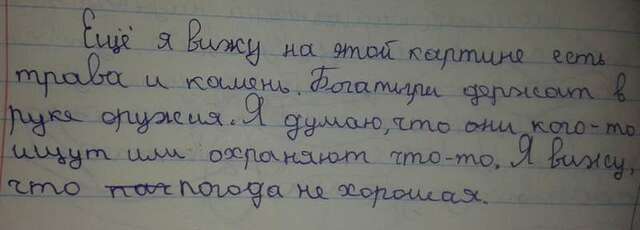 Ещё я вижу на этой картине есть
трава и камень. Богатыри держат в
руке оружия. Я думаю, что они кого-то
ищут или охраняют что-то. Я вижу,
что погода не хорошая.